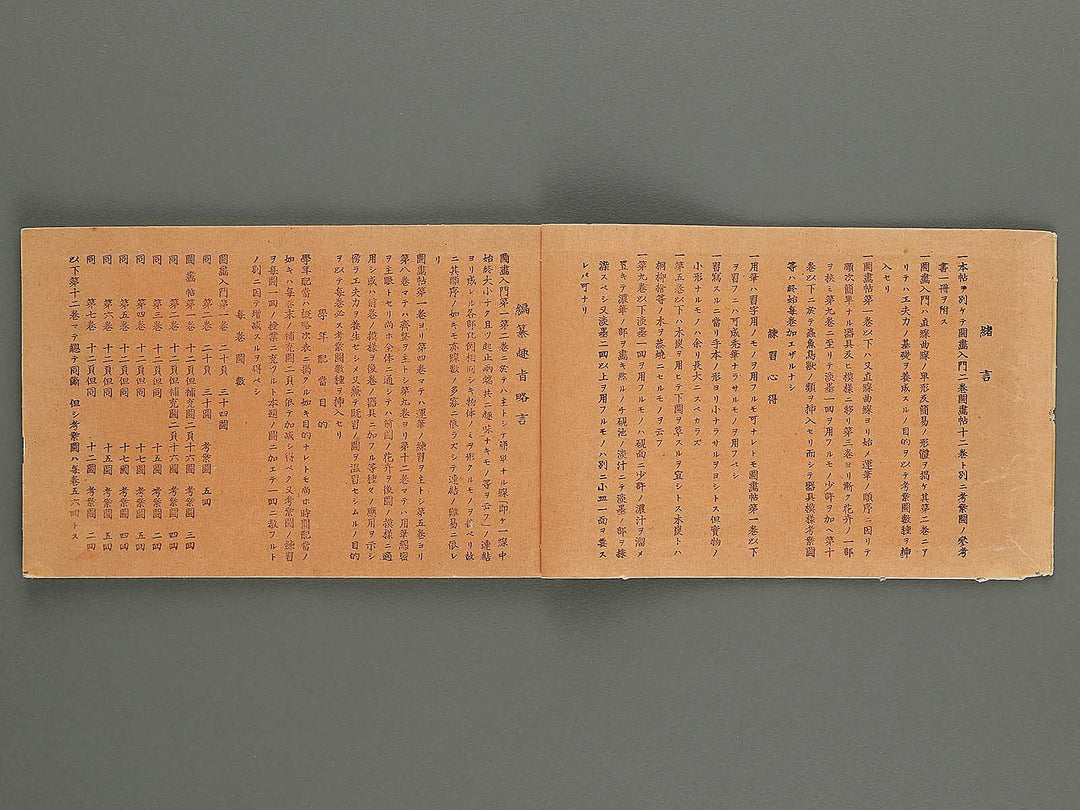 緒言
一本帖ヲ別ケテ圖畫入門二卷圖畫帖十二卷ト別ニ考案圖ノ參考
書一冊ヲ附ス
一圖畫入門ハ直線曲線ノ單形及簡易ノ形體ヲ揭ケ其第二卷ニア
リテハ工夫力ノ基礎ヲ養成スルノ目的ヲ以テ考案圖數種ヲ挿
入セリ
一圖畫帖第一卷以下ハ又直線曲線ヨリ始メ運筆ノ順序ニ因リテ
順次簡單ナル器具及ヒ模樣ニ移リ第三卷ヨリ漸ク花卉ノ一部
ヲ挾ミ第九卷ニ至リテ淡墨一四ヲ用フルモノ少許ヲ加ヘ第十
卷以下ニ於テ蟲魚鳥獸ノ類ヲ挿入セリ而シテ器具模樣考案圖
等ハ終始每卷加エザルナシ
練習心得
一用筆ハ習字用ノモノヲ用フルモ可ナレトモ圖畫帖第一卷以下
ヲ習フニハ可成禿筆ナラサルモノヲ用フベシ
一習寫スルニ當リ手本ノ形ヨリ小ナラサルヲヨシトス但實物ノ
小形ナルモノハ余リ長大ニスベカラズ
一第五卷以下ハ木炭ヲ用ヒテ下圖ヲ草スルヲ宜シトス木炭トハ
桐柳檜等ノ木ヲ蒸燒ニセルモノヲ云フ
一第九卷以下淡墨一四ヲ用フルモノハ硯面ニ少許ノ濃汁ヲ溜メ
置キテ濃筆ノ部ヲ畫キ然ルノチ硯池ノ淡汁ニテ淡墨ノ部ヲ採
潔スベシ又淡墨二四以上ヲ用フルモノハ別ニ小皿一面ヲ要ス
レバ可ナリ
編纂趣旨略言
圖畫入門第一第二卷ニ於テハ主トシテ簡單ナル線(即チ一線中
始終大小ナク且ツ起止兩端共ニ趣味ナキモノ等ヲ云フ)ノ連結
ヨリ成レル各部比例相同シキ物体ノミヲ形クルモノヲ撰ベリ故
ニ其順序ノ如キモ亦線數ノ多寡ニ依ラズシテ連結ノ難易ニ依レ
リ
圖畫帖第一卷ヨリ第四卷マテハ運筆ノ練習ヲ主トシ第五卷ヨリ
第八卷マテハ齊整ヲ主トシ第九卷ヨリ第十二卷マテハ用筆緻密
ヲ主眼トセリ尚ホ全体ニ通シテハ前圖ノ花卉ヲ後圖ノ模樣ニ適
用シ或ハ前卷ノ模樣ヲ後卷ノ器具ニ加フル等種々ノ應用ヲ示シ
傍ラ工夫力ヲ養生セシメ又兼テ既習ノ圖ヲ溫習セシムルノ目的
ヲ以テ每卷必ス考案圖數種ヲ挿入セリ
學年配當目的
學年配當ハ概略次表ニ揭クル如キ目的ナレトモ尚ホ時間配當ノ
如キハ每卷末ノ補充圖二頁ニ依テ加減シ得ベク又考案圖ノ練習
ヲ每圖一四ノ授業ニ充ツルト本題ノ圖ニ加エテ一四ニ敎フルト
ノ別ニ因テ增減スルヲ得ベシ
每卷圖數
圖畫入門第一卷 二十頁 三十四圖
同 第二卷 二十頁 三十圖 考案圖 五四
圖畫帖第一卷 十二頁但補充圖二頁十六圖 考案圖 三四
同 第二卷 十二頁但補充圖二頁十六圖 考案圖 四四
同 第三卷 十二頁但同 十五圖 考案圖 四四
同 第四卷 十二頁但同 十七圖 考案圖 四四
同 第五卷 十二頁但同 十四圖 考案圖 五四
同 第六卷 十二頁但同 十五圖 考案圖 四四
同 第七卷 十二頁但同 十二圖 考案圖 二四
以下第十二卷マテ總テ同斷 但シ考案圖ハ每卷五六四トス